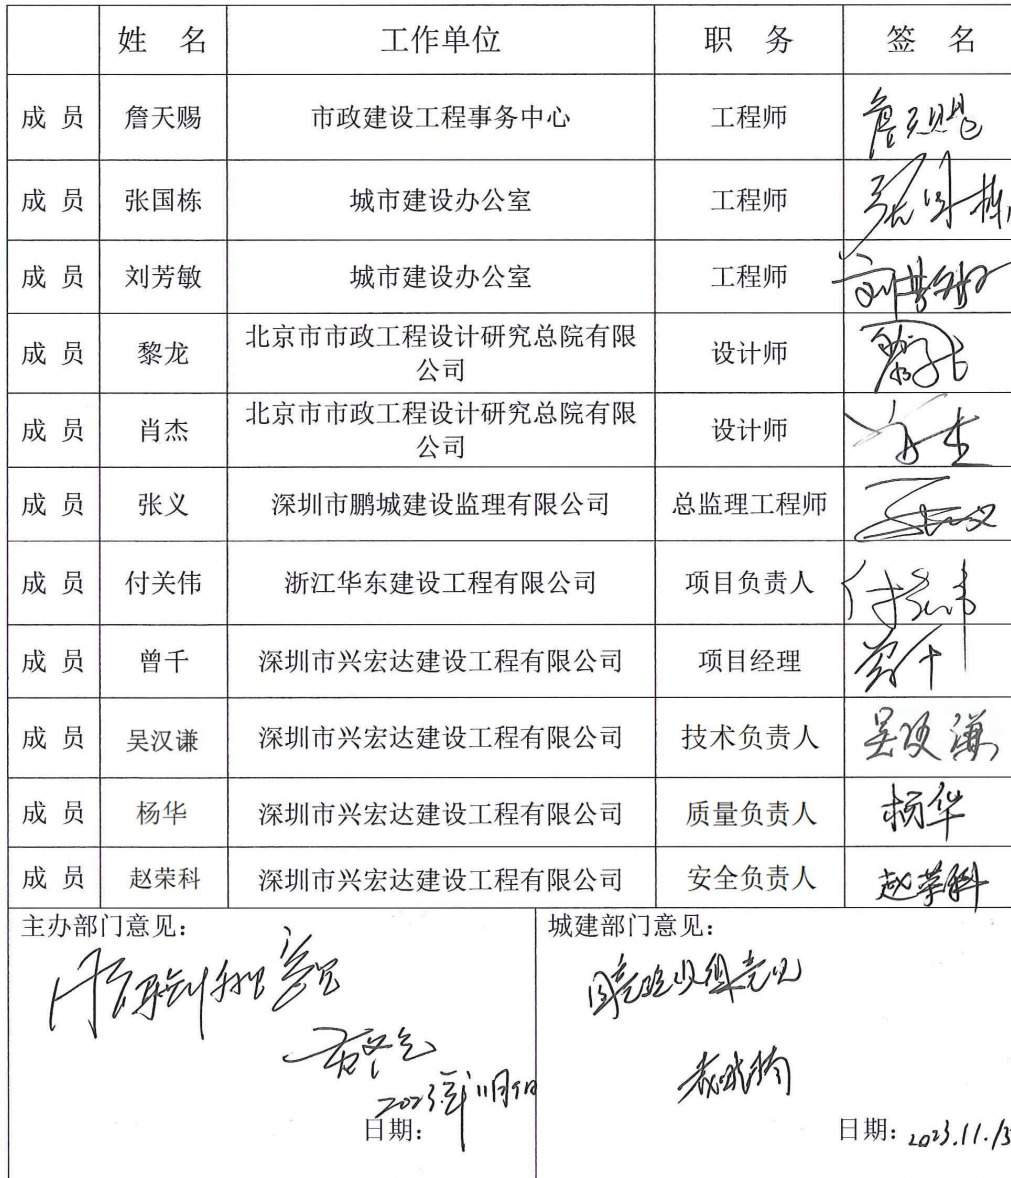 姓 名 工作单位 职 务 签 名
成 员 詹天赐 市政建设工程事务中心 工程师 詹天赐
成 员 张国栋 城市建设办公室 工程师 张国栋
成 员 刘芳敏 城市建设办公室 工程师 刘芳敏
成 员 黎龙 北京市市政工程设计研究总院有限 设计师 黎龙
公司
成 员 肖杰 北京市市政工程设计研究总院有限 设计师 肖杰
公司
成 员 张义 深圳市鹏城建设监理有限公司 总监理工程师 张义
成 员 付关伟 浙江华东建设工程有限公司 项目负责人 付关伟
成 员 曾千 深圳市兴宏达建设工程有限公司 项目经理 曾千
成 员 吴汉谦 深圳市兴宏达建设工程有限公司 技术负责人 吴汉谦
成 员 杨华 深圳市兴宏达建设工程有限公司 质量负责人 杨华
成 员 赵荣科 深圳市兴宏达建设工程有限公司 安全负责人 赵荣科
主办部门意见:
同意验收组意见
2023年11月9日
日期:
城建部门意见:
同意验收组意见
日期: 2023.11.13